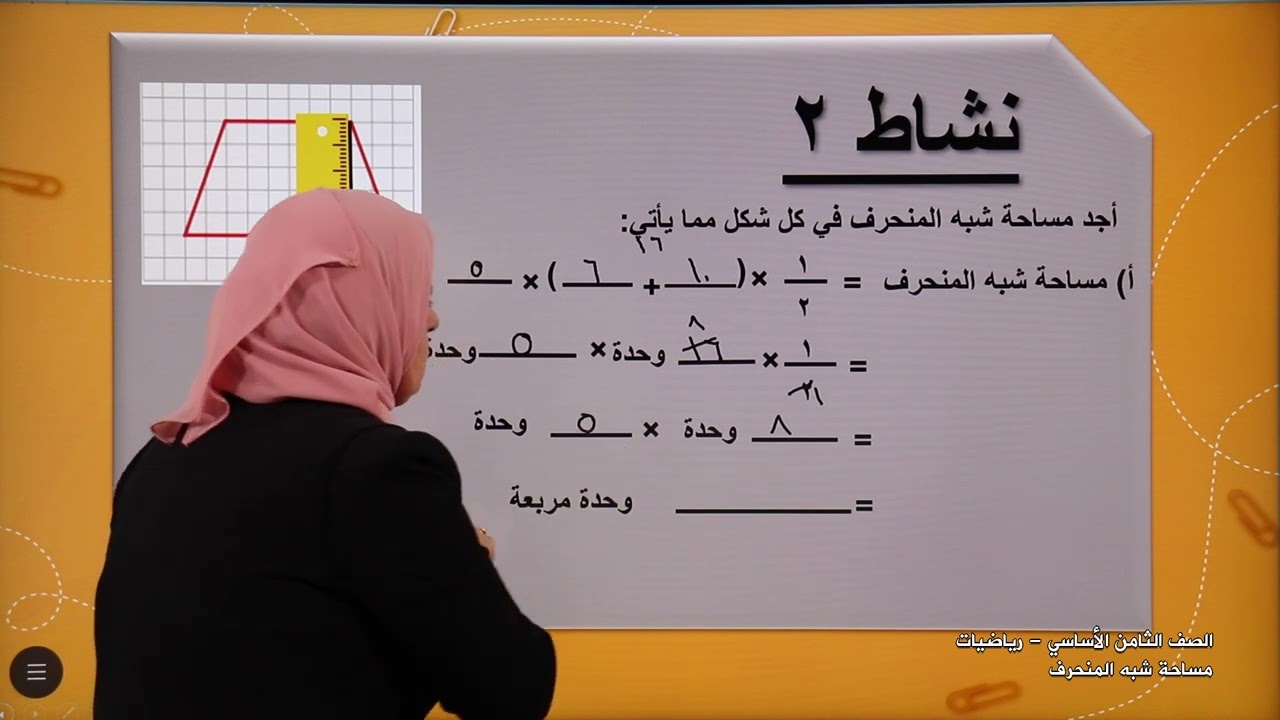 نشاط ٢
أجد مساحة شبه المنحرف في كل شكل مما يأتي:
١٦
أ) مساحة شبه المنحرف = ١/٢ × (١٠ + ٦) × ٥
= ١/٢ × ١٦ وحدة × ٥ وحدة
٨
١
= ٨ وحدة × ٥ وحدة
= ____ وحدة مربعة
الصف الثامن الأساسي - رياضيات
مساحة شبه المنحرف